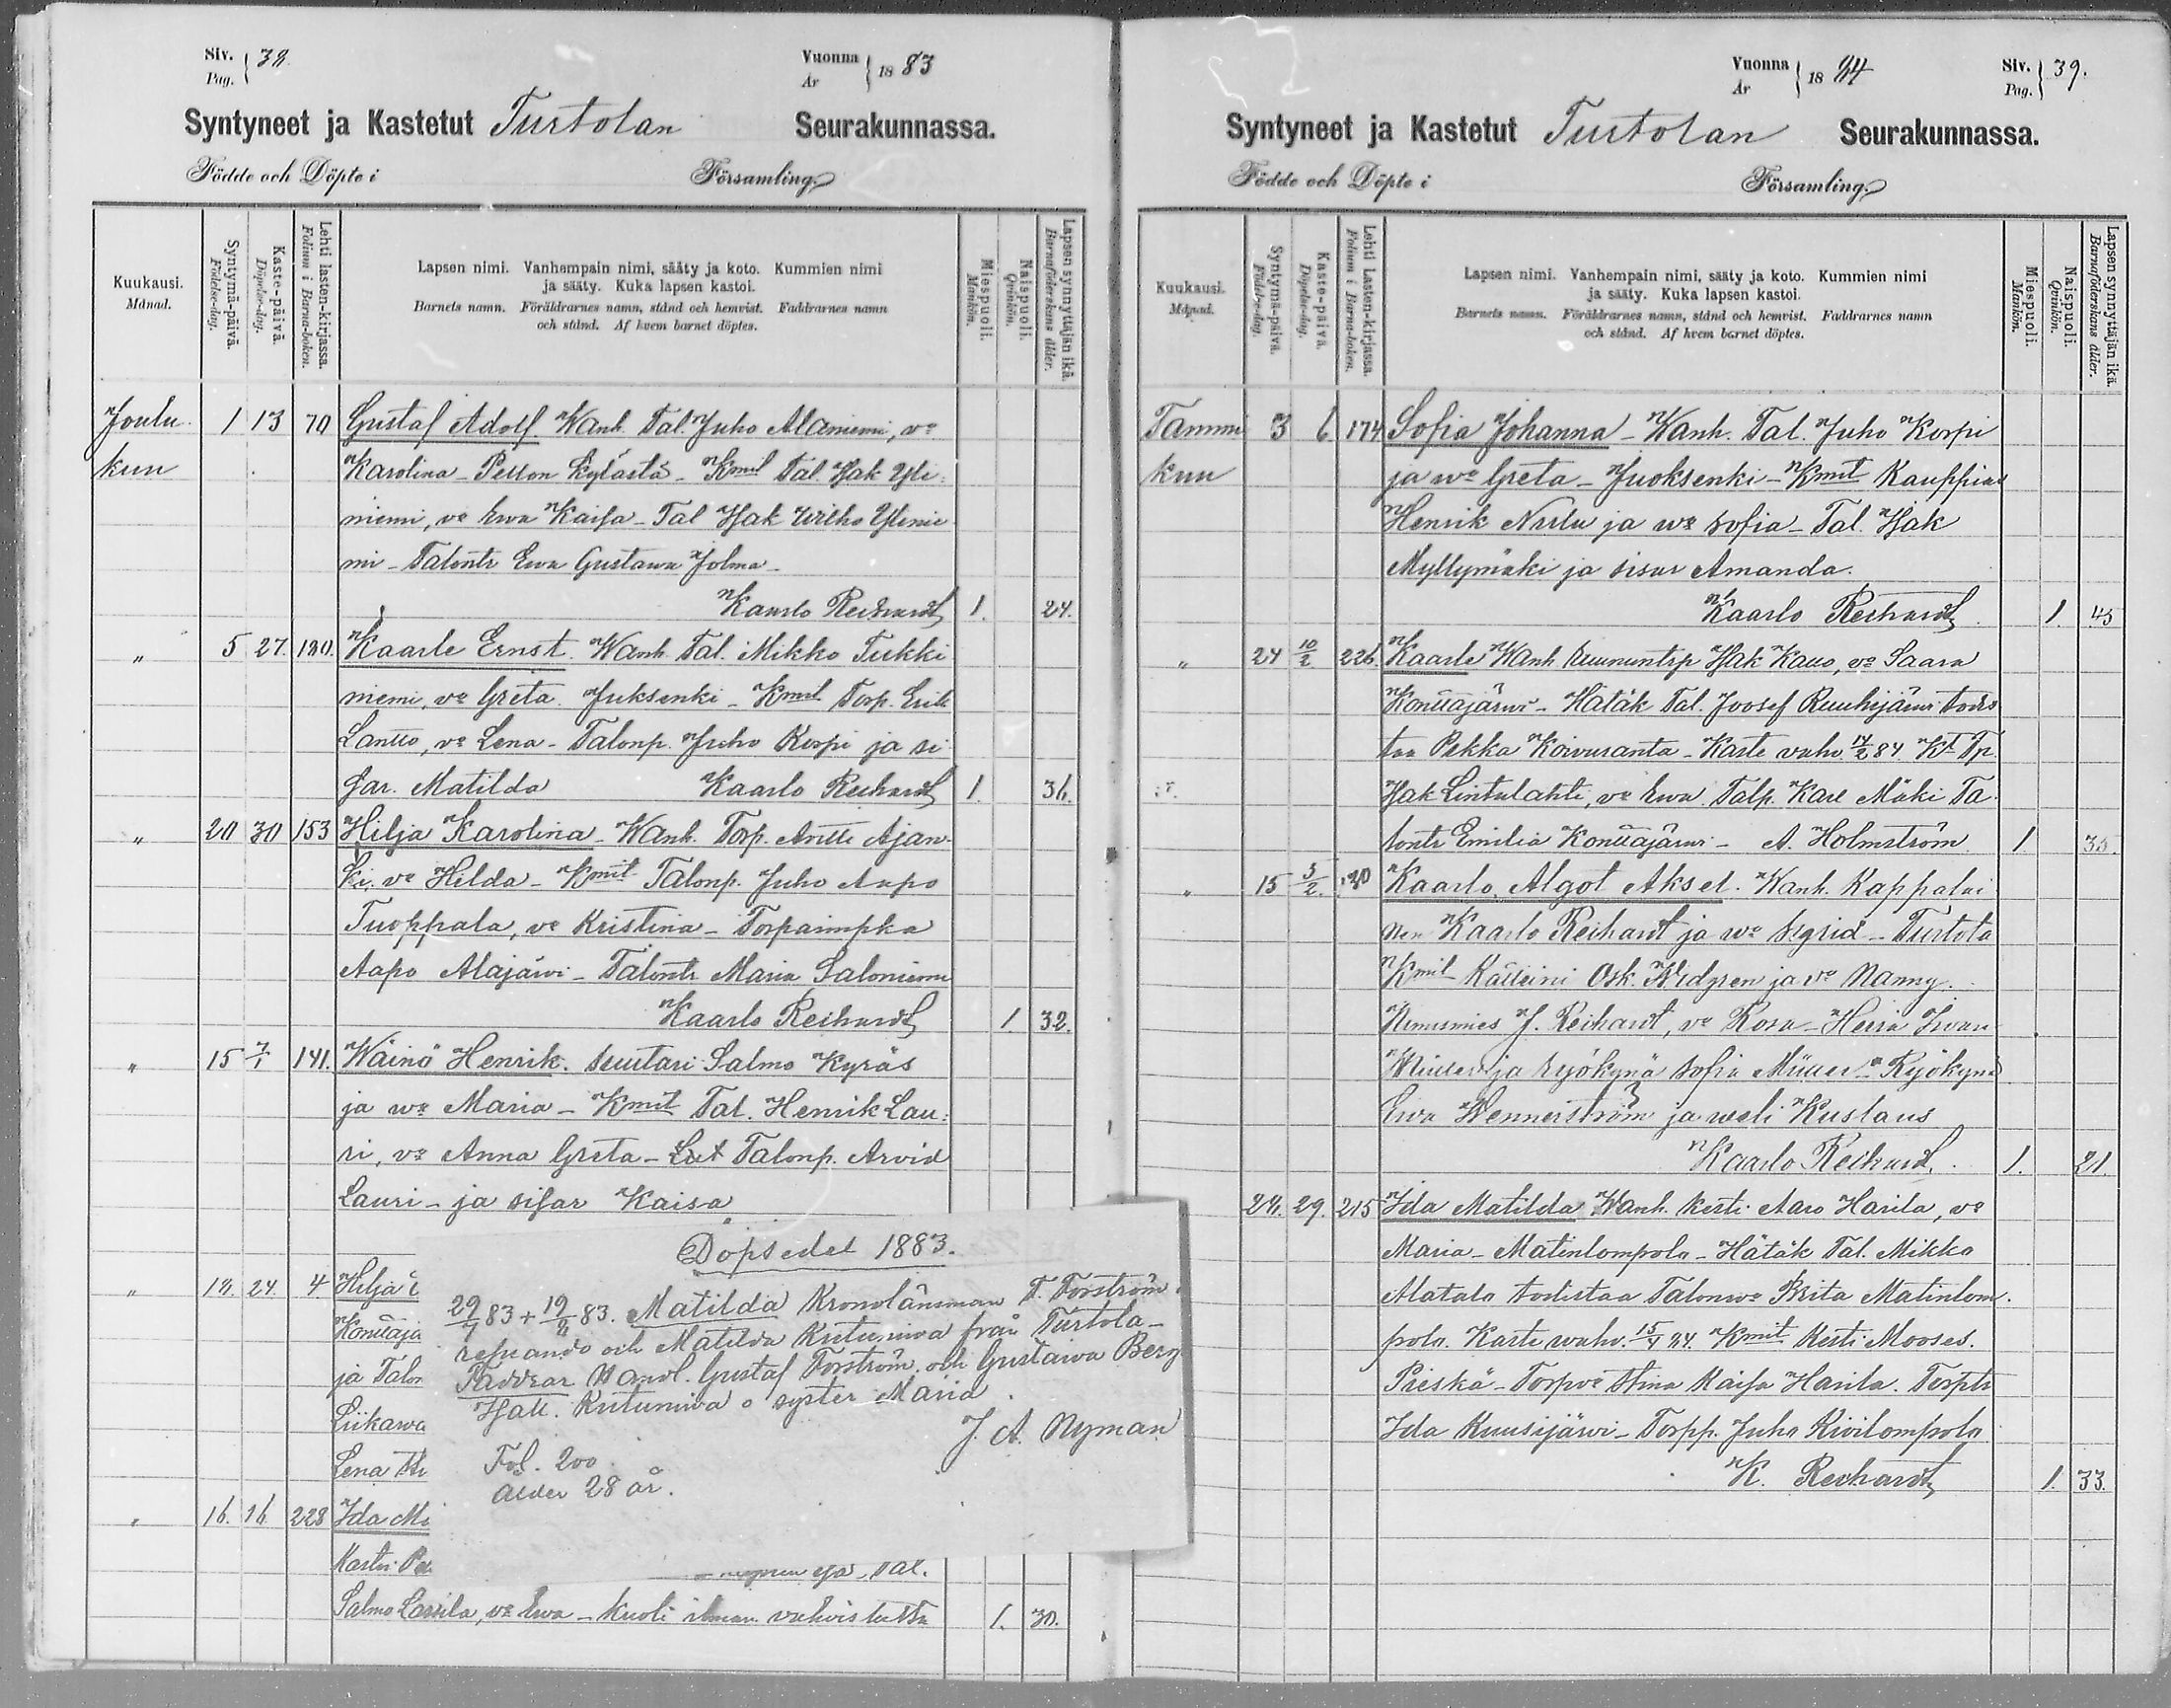 Siv. Pag. 38.
Vuonna År 1883
Syntyneet ja Kastetut Turtolan Seurakunnassa.
Födde och Döpte i Församling.
Kuukausi. Månad.
Syntymä-päivä. Födelse-dag.
Kaste-päivä. Döpelse-dag.
Lehti lasten-kirjassa. Folium i Barna-boken.
Lapsen nimi. Vanhempain nimi, sääty ja koto. Kummien nimi
ja sääty. Kuka lapsen kastoi.
Barnets namn. Föräldrarnes namn, stånd och hemvist. Faddrarnes namn
och stånd. Af hvem barnet döptes.
Miespuoli. Mankön.
Naispuoli. Qvinkön.
Lapsen synnyttäjän ikä. Barnaföderskans ålder.
Joulu 1 13 70 Gustaf Adolf. Wanh. Tal. Juho Alaniemi, vo
kuu Karolina - Pellon kylästä - Kmit Tal. Isak Yli
niemi, vo Ewa Kaisa - Tal Isak Wilho Ylinie
mi - Talontr Ewa Gustawa Jolma -
Kaarlo Reihardt 1. 24.
" 5 27. 180. Kaarle Ernst. Wanh. Tal. Mikko Tukki
niemi, vo Greta Juksenki - Kmit Torp. Erik
Lantto, vo Lena - Talonp. Juho Korpi ja si
sar. Matilda Kaarlo Reihardt 1. 36.
" 20 30 153 Hilja Karolina - Wanh. Torp. Antti Ajan
ki, vo Hilda - Kmit Talonp. Juho Aapo
Tuoppala, vo Kristina - Torparinpka
Aapo Alajärwi - Talontr Maria Saloniemi
Kaarlo Reihardt 1. 32.
" 15 7/1 141. Wäinö Henrik. Suutari Salmo Kyräs
ja wo Maria - Kmit Tal. Henrik Lau
ri, vo Anna Greta - Talonp. Arvid
Lauri - ja sisar Kaisa
Dopsedel 1883.
" 18. 24. 4 Hilja
29/7 83 + 19/8 83. Matilda Kronolänsman F. Forström
och Matilda Kutuniwa från Turtola -
Faddrar Handl. Gustaf Forström och Gustawa Berg
Isak. Kutuniwa o syster Maria.
J. A. Nyman
Fol. 200.
ålder 28 år.
Konttaja
ja Talon
Liikawa
Lena
" 16. 16 228 Ida
Tal.
Salmo Lassila, vo Ewa - kuoli ilman vahvistusta 1. 30.
Vuonna År 1884
Siv. Pag. 39.
Syntyneet ja Kastetut Turtolan Seurakunnassa.
Födde och Döpte i Församling.
Kuukausi. Månad.
Syntymä-päivä. Födelse-dag.
Kaste-päivä. Döpelse-dag.
Lehti lasten-kirjassa. Folium i Barna-boken.
Lapsen nimi. Vanhempain nimi, sääty ja koto. Kummien nimi
ja sääty. Kuka lapsen kastoi.
Barnets namn. Föräldrarnes namn, stånd och hemvist. Faddrarnes namn
och stånd. Af hvem barnet döptes.
Miespuoli. Mankön.
Naispuoli. Qvinkön.
Lapsen synnyttäjän ikä. Barnaföderskans ålder.
Tammi 3 6 174 Sofia Johanna - Wanh. Tal. Juho Korpi
kuu ja wo Greta - Juoksenki - Kmit Kauppias
Henrik Nulu ja wo Sofia - Tal. Isak
Myllymäki ja sisar Amanda.
Kaarlo Reihardt 1. 45
" 24 10/2 226. Kaarle Wanh. Isak Kauo, vo Saara
Konttajärwi - Hätäk Tal. Joosef Ruuhijärwi todis
taa Pekka Koivuranta - Kaste vahv. 14/2 84 Kt Tp
Isak Lintulahti, vo Ewa. Talp. Karl Mäki Ta
lontr Emilia Konttajärwi - A. Holmström 1 35.
" 15 5/2. Kaarlo Algot Aksel. Wanh. Kappalai
nen Kaarlo Reihardt ja wo Sigrid - Turtola
Kmit Kätteini Osk. Widgren ja vo Nanny.
Nimismies J. Reihardt, vo Rosa - Herra Iwan
ja ryökynä Sofia Müller - Ryökynä
Ewa Wennerström ja weli Kustaus
Kaarlo Reihardt. 1. 21.
24. 29. 215 Ida Matilda Wanh. Kesti Aaro Harila, vo
Maria - Matinlompolo - Hätäk Tal. Mikko
Alatalo todistaa Talonwo Brita Matinlom
polo. Kaste wahv. 15/4 84. Kmit Kesti Mooses.
Pieskä - Torpvo Stina Kaisa Harila. Torptr
Ida Kuusijärwi - Torpp. Juho Kivilompolo
K. Reihardt 1. 33.